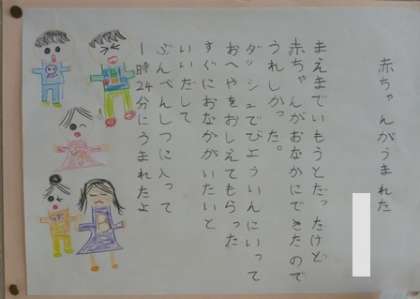 赤ちゃんがうまれた
まえまでいもうとだったけど
赤ちゃんがおなかにできたので
うれしかった。
ダッシュでびょういんにいって
おへやをおしえてもらった
すぐにおなかがいたいと
いいだして
ぶんべんしつに入って
1時24分にうまれたよ